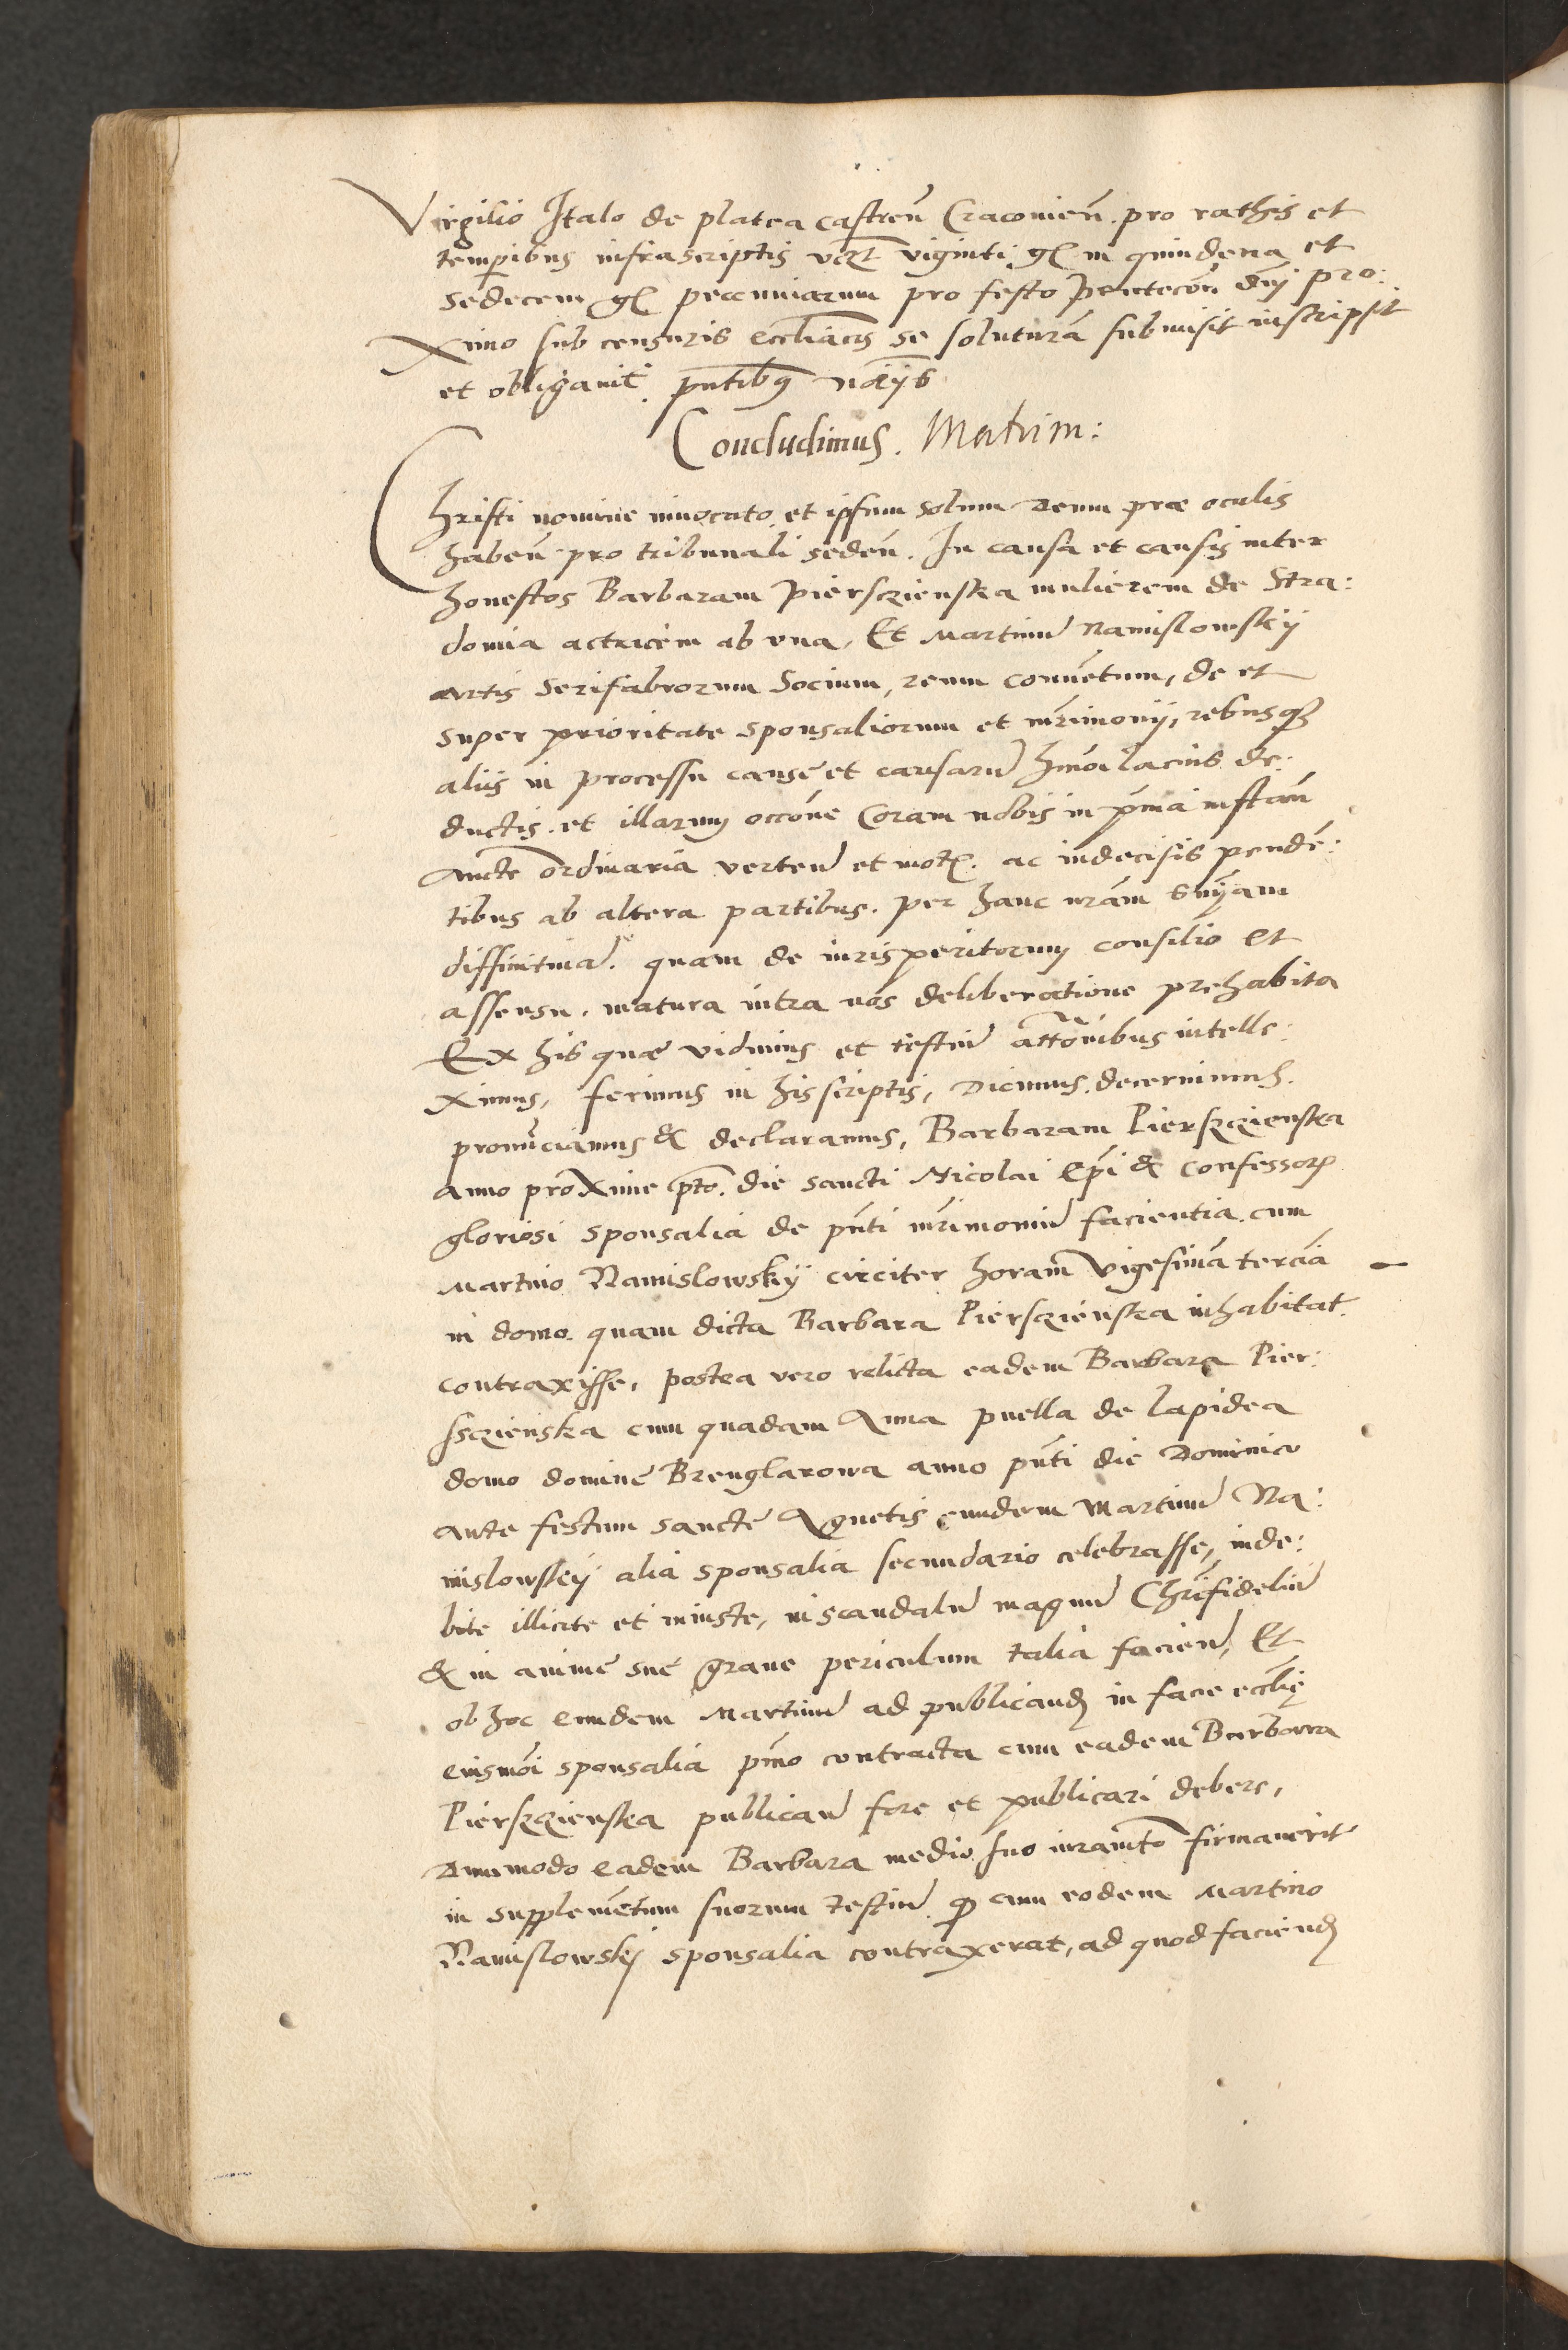 Virgilio Italo de platea castren̄ Cracovien̄. pro rathis et
temp̄ibus infrascriptis vcz̄t viginti gl in quindena et
sedecem gl pecuniarum pro festo Pentecōn dnj pro:
ximo sub censuris eccl̄iacis se soluturā submisit inscripsit
et obligavit. pn̄tibq notijs
Concludimus. Matrim:
Christi nomine invocato, et ipsum solum deum præ oculis
haben̄ pro tribunali seden̄. In causa et causis inter
honestos Barbaram Pierszienska mulierem de Stra:
domia actricem ab una, Et Martinū Namislowskij
artis serifabrorum Socium, reum conuētum, de et
super prioritate sponsaliorum et mr̄imonij, rebusq3
aliis in processu cause et causarū hmōi lacius de:
ductis. et illarum occōne Coram nobis in pr̄ma instan̄
aucte ordinaria verten̄ et mot. ac indecisis pendē:
tibus ab altera partibus. per hanc nr̄am sn̄iam
diffinitivā. quam de iurisperitorum consilio et
assensu. matura intra nos deliberatione prehabita
Ex his quæ vidimus et testiū attōnibus intelle:
ximus, ferimus in his scriptis, Dicimus, decernimus.
pronūciamus & declaramus, Barbaram Pierszienska
anno proxime pto. die sancti Nicolai Ep̄i & confessoris
gloriosi sponsalia de pn̄ti mr̄imoniū facientia. cum
Martino Namislowskij circiter horam vigesimā terciā
in domo quam dicta Barbara Pierszienska inhabitat
contraxisse, postea vero relicta eadem Barbara Pier:
sszienska cum quadam Anna puella de lapidea
domo domine Brenglarowa anno pn̄ti die Dominico
ante festum sancte Agnetis eundem Martinū Na:
mislowskij alia sponsalia secundario celebrasse, inde:
bite illicite et iniuste, in scandalū magnū Chr̄ifideliū
& in anime sue grave periculum talia facien̄, Et
ob hoc eundem Martinū ad publicand in facie eccl̄ię
eiusmōi sponsalia pm̄o contracta cum eadem Barbara
Pierszienska publican̄ fore et publicari debere,
Dummodo eadem Barbara medio suo iuramto firmaverit
in supplemētum suorum testiū. qp cum eodem Martino
Namislowskj sponsalia contraxerat, ad quod faciend